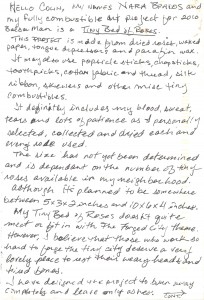 Hello Colin, My name's Nara Bealos and
my fully combustible art project for 2010
Balsa Man is a Tiny Bed of Roses.
This project is made from dried roses, waxed
paper, tongue depressors and paraffin wax.
It may also use popsicle sticks, chopsticks,
toothpicks, cotton fabric and thread, silk
ribbon, skewers and other misc tiny
combustibles.
It definitely includes my blood, sweat,
tears and lots of patience as I personally
selected, collected and dried each and
every rose used.
The size has not yet been determined
and is dependent on the number of tiny
roses available in my neighborhood.
although its planned to be somewhere
between 5x3x2 inches and 10x6x4 inches.
My Tiny Bed of Roses doesn't quite
meet or fit in with The Forged City theme.
However, I believe that those who work so
hard to forge the tiny city deserve a very
lovely place to rest their weary heads and
tired bones.
I have designed this project to burn away
completely and leave only ashes.